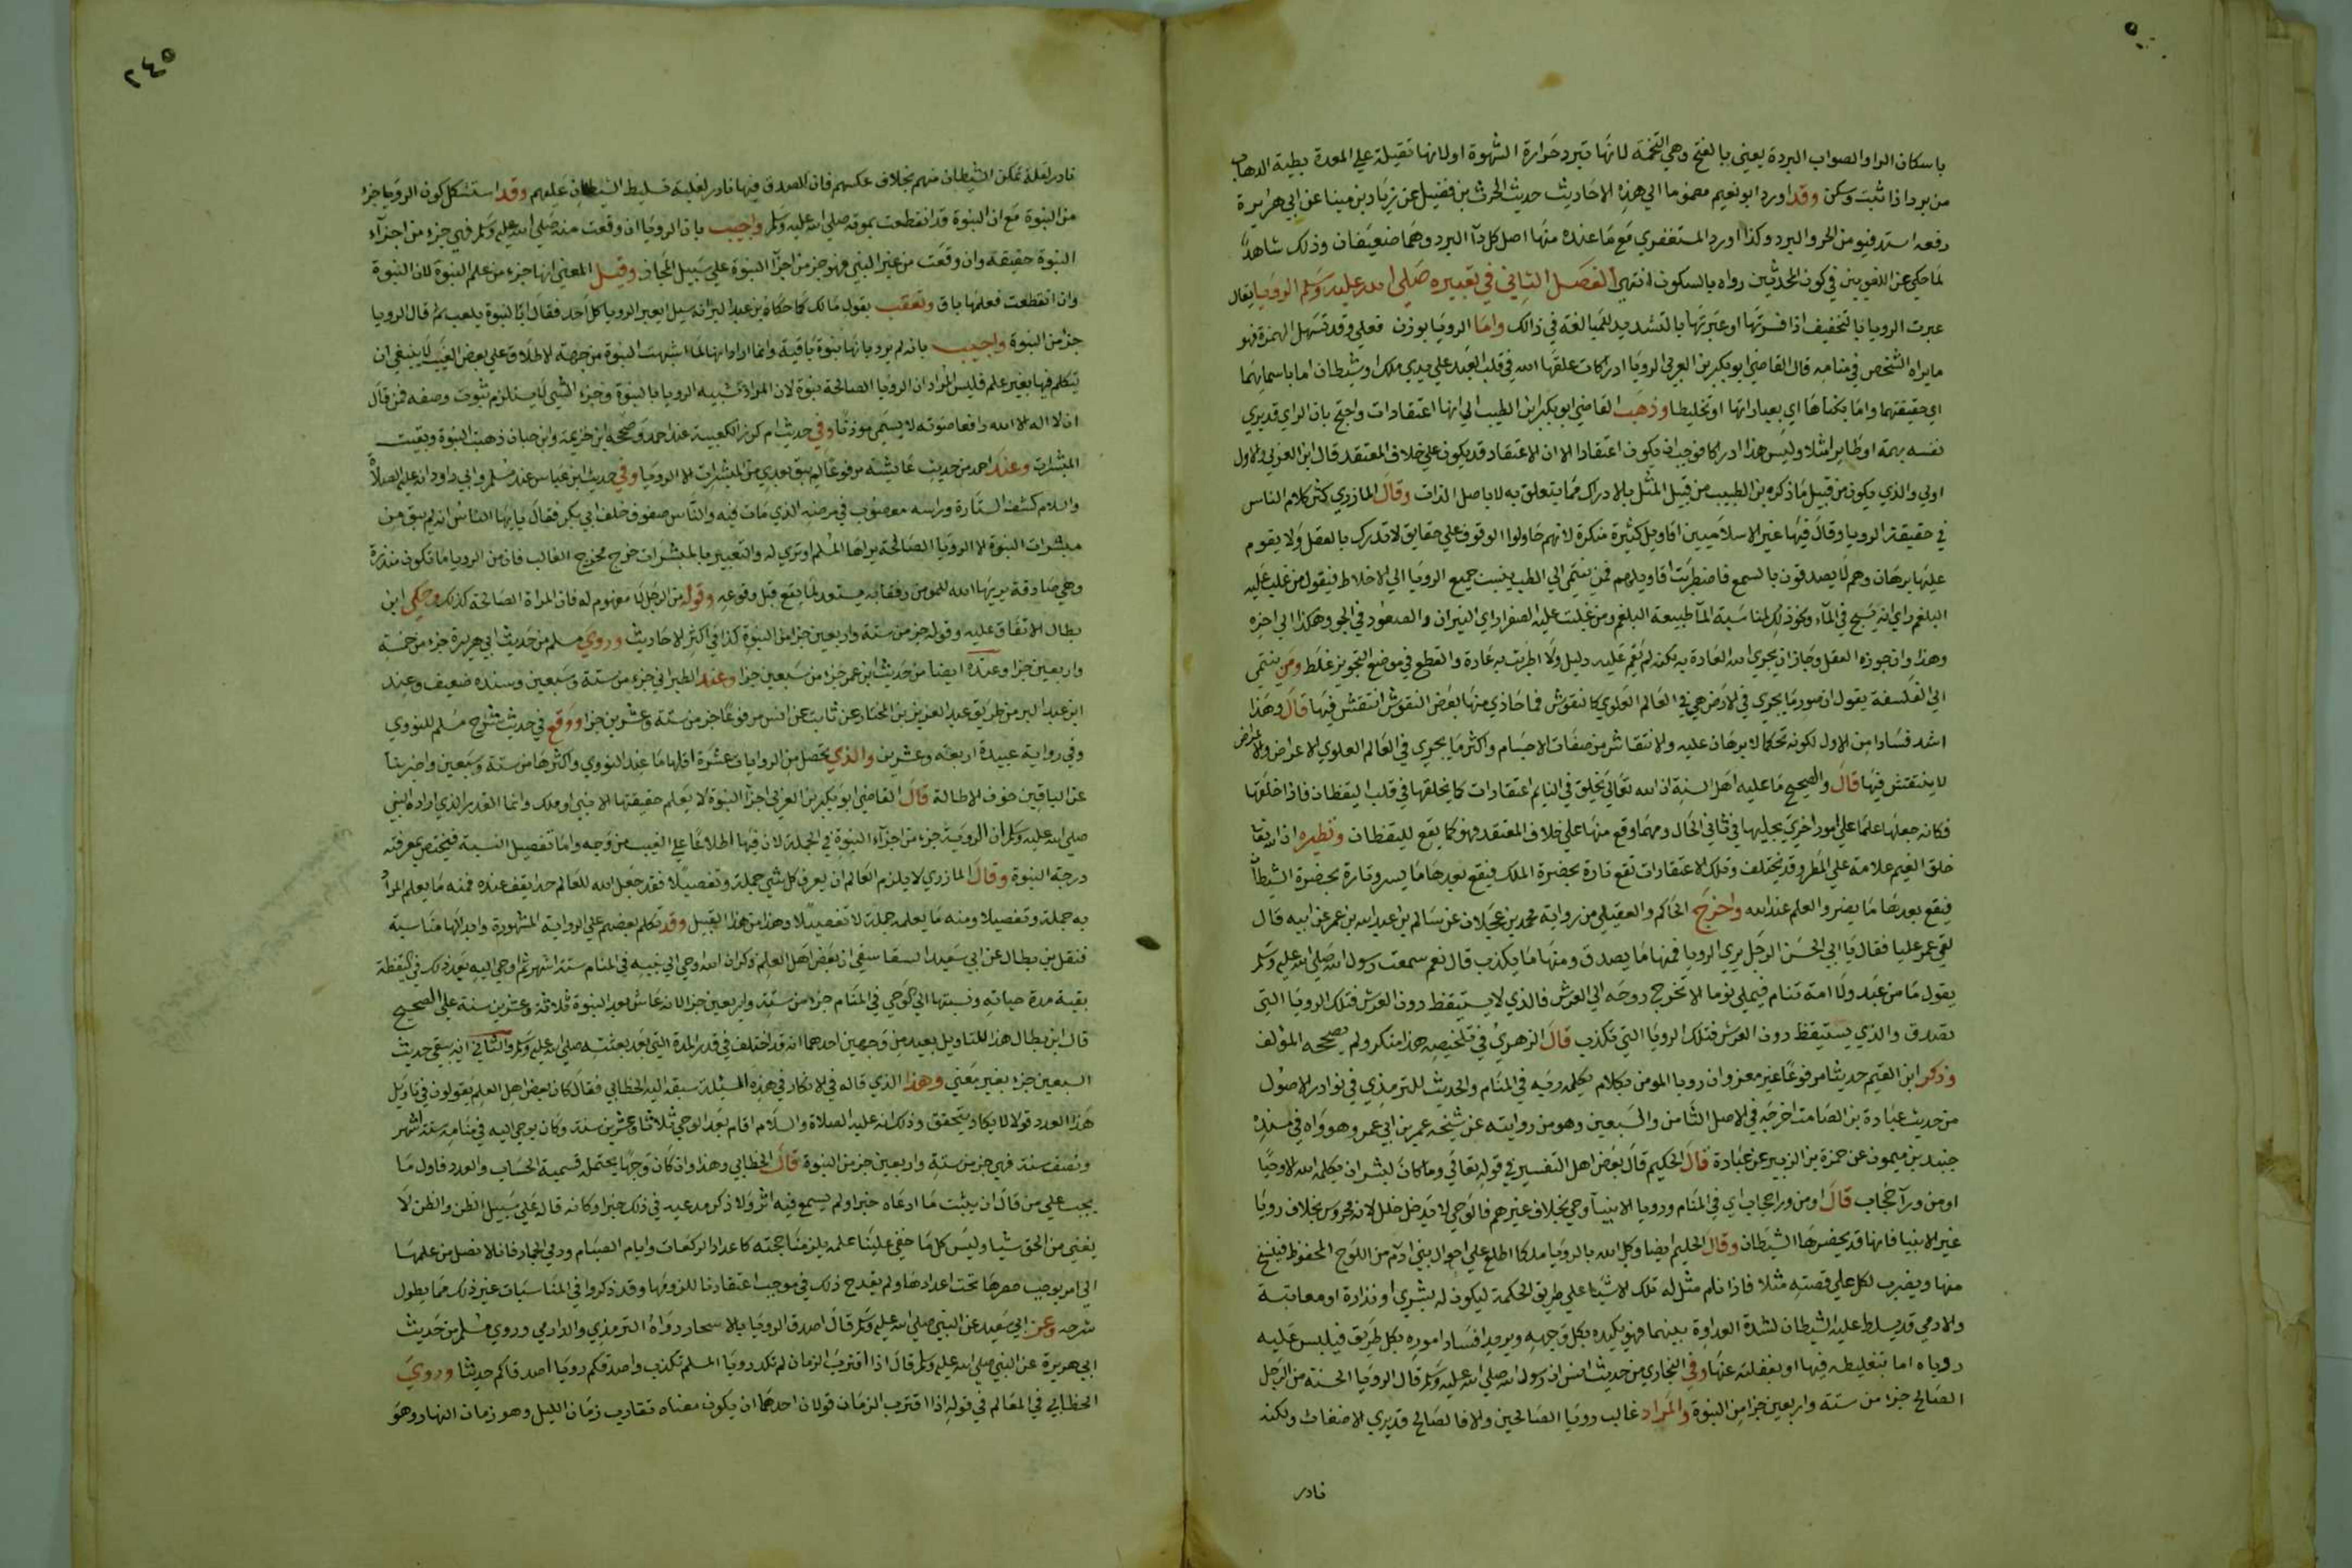 باسكان الرا والصواب البردة يعني بالفتح وهي التخمة لانها تبرد حرارة الشهوة اولانها ثقيلة علي المعدة بطية الذهاب
من برد اذا ثبت وسكن وقد اورد ابو نعيم مضموما الي هذه الاحاديث حديث الحرث بن فضيل عن زياد بن مينا عن ابي هريرة
رفعه استدفيو من الحر والبرد وكذا اورد المستغفري مع ما عنده منها اصل كل دآ البرد وهما ضعيفان وذلك شاهد
لما حكي عن اللغويين في كون المحدثين رواه بالسكون انتهي الفصل الثاني في تعبيره صلي الله عليه وسلم الرويا يقال
عبرت الرويا بالتخفيف اذا فسرتها وعبرتها بالتشديد للمبالغة في ذالك واما الرويا بوزن فعلي وقد تسهل الهمزة فهو
ما يراه الشخص في منامه قال القاضي ابو بكر بن العربي الرويا ادراكات علقها الله في قلب العبد علي يدي ملك او شيطان اما باسمايهما
اي حقيقتهما واما بكناها اي بعباراتها او تخليطا وذهب القاضي ابو بكر ابن الطيب الي انها اعتقادات واحتج بان الراي قد يري
نفسه بهيمة او طايرا مثلا وليس هذا ادراكا فوجب ان يكون اعتقادا لان الاعتقاد قد يكون علي خلاف المعتقد قال ابن العربي والاول
اولي والذي يكون من قبيل ما ذكره بن الطيب من قبيل المثل بالادراك مما يتعلق به لا باصل الذات وقال المازري كثر كلام الناس
في حقيقة الرويا وقال فيها غير الاسلاميين اقاويل كثيرة منكرة لانهم حاولوا الوقوف علي حقايق لا تدرك بالعقل ولا يقوم
عليها برهان وهم لا يصدقون بالسمع فاضطربت اقاويلهم فمن ينتمي الي الطب ينسب جميع الرويا الي الاخلاط فيقول من غلب عليه
البلغم راي انه يسبح في المآ ونحو ذلك لمناسبة المآ طبيعة البلغم ومن غلبت عليه الصفرا راي النيران والصعود في الجو وهكذا الي اخره
وهذا وان جوزه العقل وجاز ان يجري الله العادة به لكنه لم يقم عليه دليل ولا اطردت به عادة والقطع في موضع التجويز غلط ومن ينتمي
الي الفلسفة يقول ان صور ما يجري في الارض هي في العالم العلوي كالنقوش فما حاذي منها بعض النقوش انتقش فيها قال وهذا
اشد فسادا من الاول لكونه تحكما لا برهان عليه والانتقاش من صفات الاجسام واكثر ما يجري في العالم العلوي الاعراض والاعراض
لا ينتقش فيها قال والصحيح ما عليه اهل السنة ان الله تعالي يخلق في النايم اعتقادات كما يخلقها في قلب اليقظان فاذا خلقها
فكانه جعلها علما علي امور اخري يخلقها في ثاني الحال ومهما وقع منها علي خلاف المعتقد فهو كما يقع لليقظان ونظيره ان الله تعا
خلق الغيم علامة علي المطر وقد يتخلف وتلك الاعتقادات تقع تارة بحضرة الملك فيقع بعدها ما يسر وتارة بحضرة الشيطا
فيقع بعدها ما يضر والعلم عند الله واخرج الحاكم والعقيلي من رواية محمد بن عجلان عن سالم بن عبد الله بن عمر عن ابيه قال
لقي عمر عليا فقال يا ابي الحسن الرجل يري الرويا فمنها ما يصدق ومنها ما يكذب قال نعم سمعت رسول الله صلي الله عليه وسلم
يقول ما من عبد ولا امة تنام فيمتلي نوما الا تخرج روحه الي العرش فالذي لا يستيقظ دون العرش فتلك الرويا التي
تصدق والذي يستيقظ دون العرش فتلك الرويا التي تكذب قال الزهري في تلخيصه هذا منكر ولم يصححه المؤلف
وذكر ابن القيم حديثا مرفوعا غير معزو ان رويا المومن كلام يكلمه ربه في المنام والحديث للترمذي في نوادر الاصول
من حديث عبادة بن الصامت اخرجه في الاصل الثامن والسبعين وهو من روايته عن شيخه عمر بن ابي عمر وهو واه في سنده
جنيد بن ميمون عن حمزة بن الزبير عن عبادة قال الحكيم قال بعض اهل التفسير في قوله تعالي وما كان لبشر ان يكلمه الله الا وحيا
او من ورآ حجاب قال او من ورا حجاب اي في المنام ورويا الانبيآ وحي بخلاف غيرهم فالوحي لا يدخل خلل لانه محروس بخلاف رويا
غير الانبيا فانها قد يحضرها الشيطان وقال الحكيم ايضا وكل الله بالرويا ملكا اطلع علي احوال بني ادم من اللوح المحفوظ فينسخ
منها ويضرب لكل علي قصته مثلا فاذا نام مثل له تلك الاشيا علي طريق الحكمة ليكون له بشري او نذارة او معاتبة
والادمي قد يسلط عليه الشيطان لشدة العداوة بينهما فهو يكيده بكل وجهه ويريد افساد اموره بكل طريق فيلبس عليه
روياه اما بتغليطه فيها او بغفلته عنها وفي البخاري من حديث انس ان رسول الله صلي الله عليه وسلم قال الرويا الحسنة من الرجل
الصالح جزا من ستة واربعين جزا من النبوة والمراد غالب رويا الصالحين والا فالصالح قد يري الاضغاث ولكنه
نادر
٢٤٥
نادر لقلة تمكن الشيطان منهم بخلاف عكسهم فان الصدق فيها نادر لغلبة تسليط الشيطان عليهم وقد استشكل كون الرويا جزا
من النبوة مع ان النبوة قد انقطعت بموته صلي الله عليه وسلم واجيب بان الرويا ان وقعت منه صلي الله عليه وسلم فهي جزء من اجزآء
النبوة حقيقة وان وقعت من غير النبي فهو جز من اجزآ النبوة علي سبيل المجاز وقيل المعني انها جزء من علم النبوة لان النبوة
وان انقطعت فعلمها باق وتعقب بقول مالك كما حكاه بن عبد البر انه سيل ايعبر الرويا كل احد فقال ابالنبوة يلعب ثم قال الرويا
جز من النبوة واجيب بانه لم يرد بانها نبوة باقية وانما اراد انها لما اشبهت النبوة من جهة الاطلاق علي بعض الغيب لا ينبغي ان
يتكلم فيها بغير علم فليس المراد ان الرويا الصالحة نبوة لان المراد تشبيه الرويا بالنبوة وجزء الشي لا يستلزم ثبوت وصفه فمن قال
ان لا اله الا الله رافعا صوته لا يسمي موذنا وفي حديث ام كرز الكعبية عند احمد وصححه ابن خزيمة وابن حبان ذهبت النبوة وبقيت
المبشرات وعند احمد من حديث عايشه مرفوعا لم يبق بعدي من المبشرات الا الرويا وفي حديث ابن عباس عند مسلم وابي داود انه عليه الصلاة
والسلام كشف الستارة وراسه معصوب في مرضه الذي مات فيه والناس صفوف خلف ابي بكر فقال يا ايها الناس انه لم يبق من
مبشرات النبوة الا الرويا الصالحة يراها المسلم او تري له والتعبير بالمبشرات خرج مخرج الغالب فان من الرويا ما تكون منذرة
وهي صادقة يريها الله للمومن رفقا به ليستعد لما يقع قبل وقوعه وقوله من الرجل لا مفهوم له فان المراة الصالحة كذلك وحكي ابن
بطال الاتفاق عليه وقوله جز من ستة واربعين جزا من النبوة كذا في اكثر الاحاديث وروي مسلم من حديث ابي هريرة جزء من خمسة
واربعين جزا وعنده ايضا من حديث ابن عمر جزء من سبعين جزا وعند الطبراني جزء من ستة وسبعين وسنده ضعيف وعند
ابن عبد البر من طريق عبد العزيز بن المختار عن ثابت عن انس مرفوعا جز من ستة وعشرين جزا ووقع في حديث شرح مسلم للنووي
وفي رواية عبيدة اربعة وعشرين والذي يتحصل من الروايات عشرة اقلها ما عند النووي واكثرها من ستة وسبعين واضربنا
عن الباقين خوف الاطالة قال القاضي ابو بكر بن العربي اجزآ النبوة لا يعلم حقيقتها الا نبي او ملك وانما القدر الذي اراده النبي
صلي الله عليه وسلم ان الرويه جزء من اجزآء النبوة في الجملة لان فيها اطلاعا علي الغيب من وجه واما تفصيل النسبة فيختص بمعرفته
درجة النبوة وقال المازري لا يلزم العالم ان يعرف كل شي جملة وتفصيلا فقد جعل الله للعالم حدا يقف عنده فمنه ما يعلم المراد
به جملة وتفصيلا ومنه ما يعلمه جملة لا تفصيلا وهذا من هذا القبيل وقد تكلم بعضهم علي الرواية المشهورة وابدا لها مناسبة
فنقل بن بطال عن ابي سعيد السفاسقي ان بعض اهل العلم ذكر ان الله اوحي الي نبيه في المنام ستة اشهر ثم اوحي اليه بعد ذلك في اليقظة
بقية مدة حياته ونسبتها الي الوحي في المنام جزء من ستة واربعين جزا لانه عاش بعد النبوة ثلاثة وعشرين سنة علي الصحيح
قال ابن بطال هذا التاويل بعيد من وجهين احدهما انه قد اختلف في قدر المدة التي بعد بعثته صلي الله عليه وسلم والثاني انه يبقي حديث
السبعين جزء بغير معني وهذا الذي قاله في الانكار في هذه المسئلة سبقه اليه الخطابي فقال كان بعض اهل العلم يقولون في تاويل
هذا العدد قولا لا يكاد يتحقق وذلك انه عليه الصلاة والسلام اقام بعد الوحي ثلاثا وعشرين سنة وكان يوحي اليه في منامه ستة اشهر
ونصف سنة فهي جز من ستة واربعين جز من النبوة قال الخطابي وهذا وان كان وجها يحتمله قسمية الحساب والعدد فاول ما
يجب علي من قال ان يثبت ما ادعاه خبرا ولم يسمع فيه اثر ولا ذكر مدعيه في ذلك خبرا وكانه قاله علي سبيل الظن والظن لا
يغني من الحق شيا وليس كل ما خفي علينا علمه يلزمنا حجته كاعداد الركعات وايام الصيام ورمي الجمار فانا لا نصل من علمها
الي امر يوجب حصرها تحت اعدادها ولم يقدح ذلك في موجب اعتقادنا للزومها وقد ذكروا في المناسبات غير ذلك مما يطول
شرحه وعن ابي سعيد عن النبي صلي الله عليه وسلم قال اصدق الرويا بالاسحار رواه الترمذي والدارمي وروي مسلم من حديث
ابي هريرة عن النبي صلي الله عليه وسلم قال اذا اقترب الزمان لم تكد رويا المسلم تكذب واصدقكم رويا اصدقاكم حديثا وروي
الخطابي في المعالم في قوله اذا اقترب الزمان قولان احدهما ان يكون معناه تقارب زمان الليل وهو زمان النهار وهو